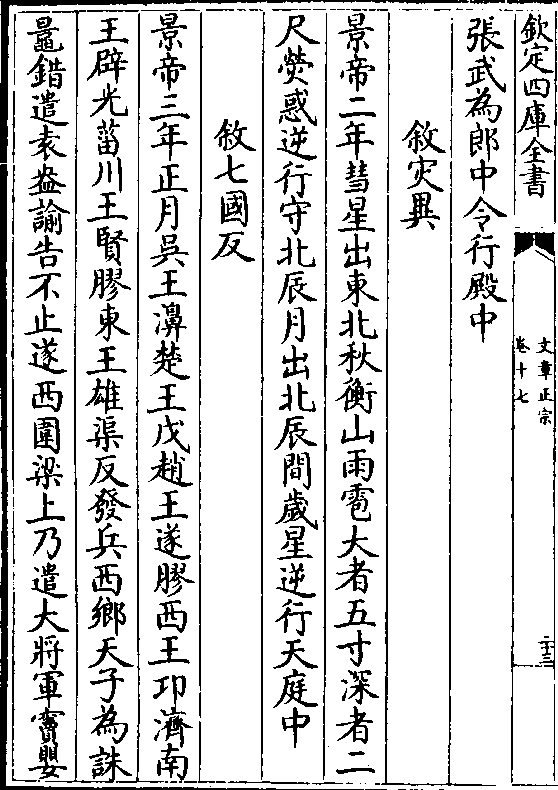 欽定四庫全書
文章正宗
卷十七
二十三
張武為郎中令行殿中
敘灾異
景帝二年彗星出東北秋衡山雨雹大者五寸深者二
尺熒惑逆行守北辰月出北辰間歲星逆行天庭中
敘七國反
景帝三年正月吳王濞楚王戊趙王遂膠西王卬濟南
王辟光菑川王賢膠東王雄渠反發兵西鄉天子為誅
鼂錯遣袁盎諭告不止遂西圍梁上乃遣大將軍竇嬰